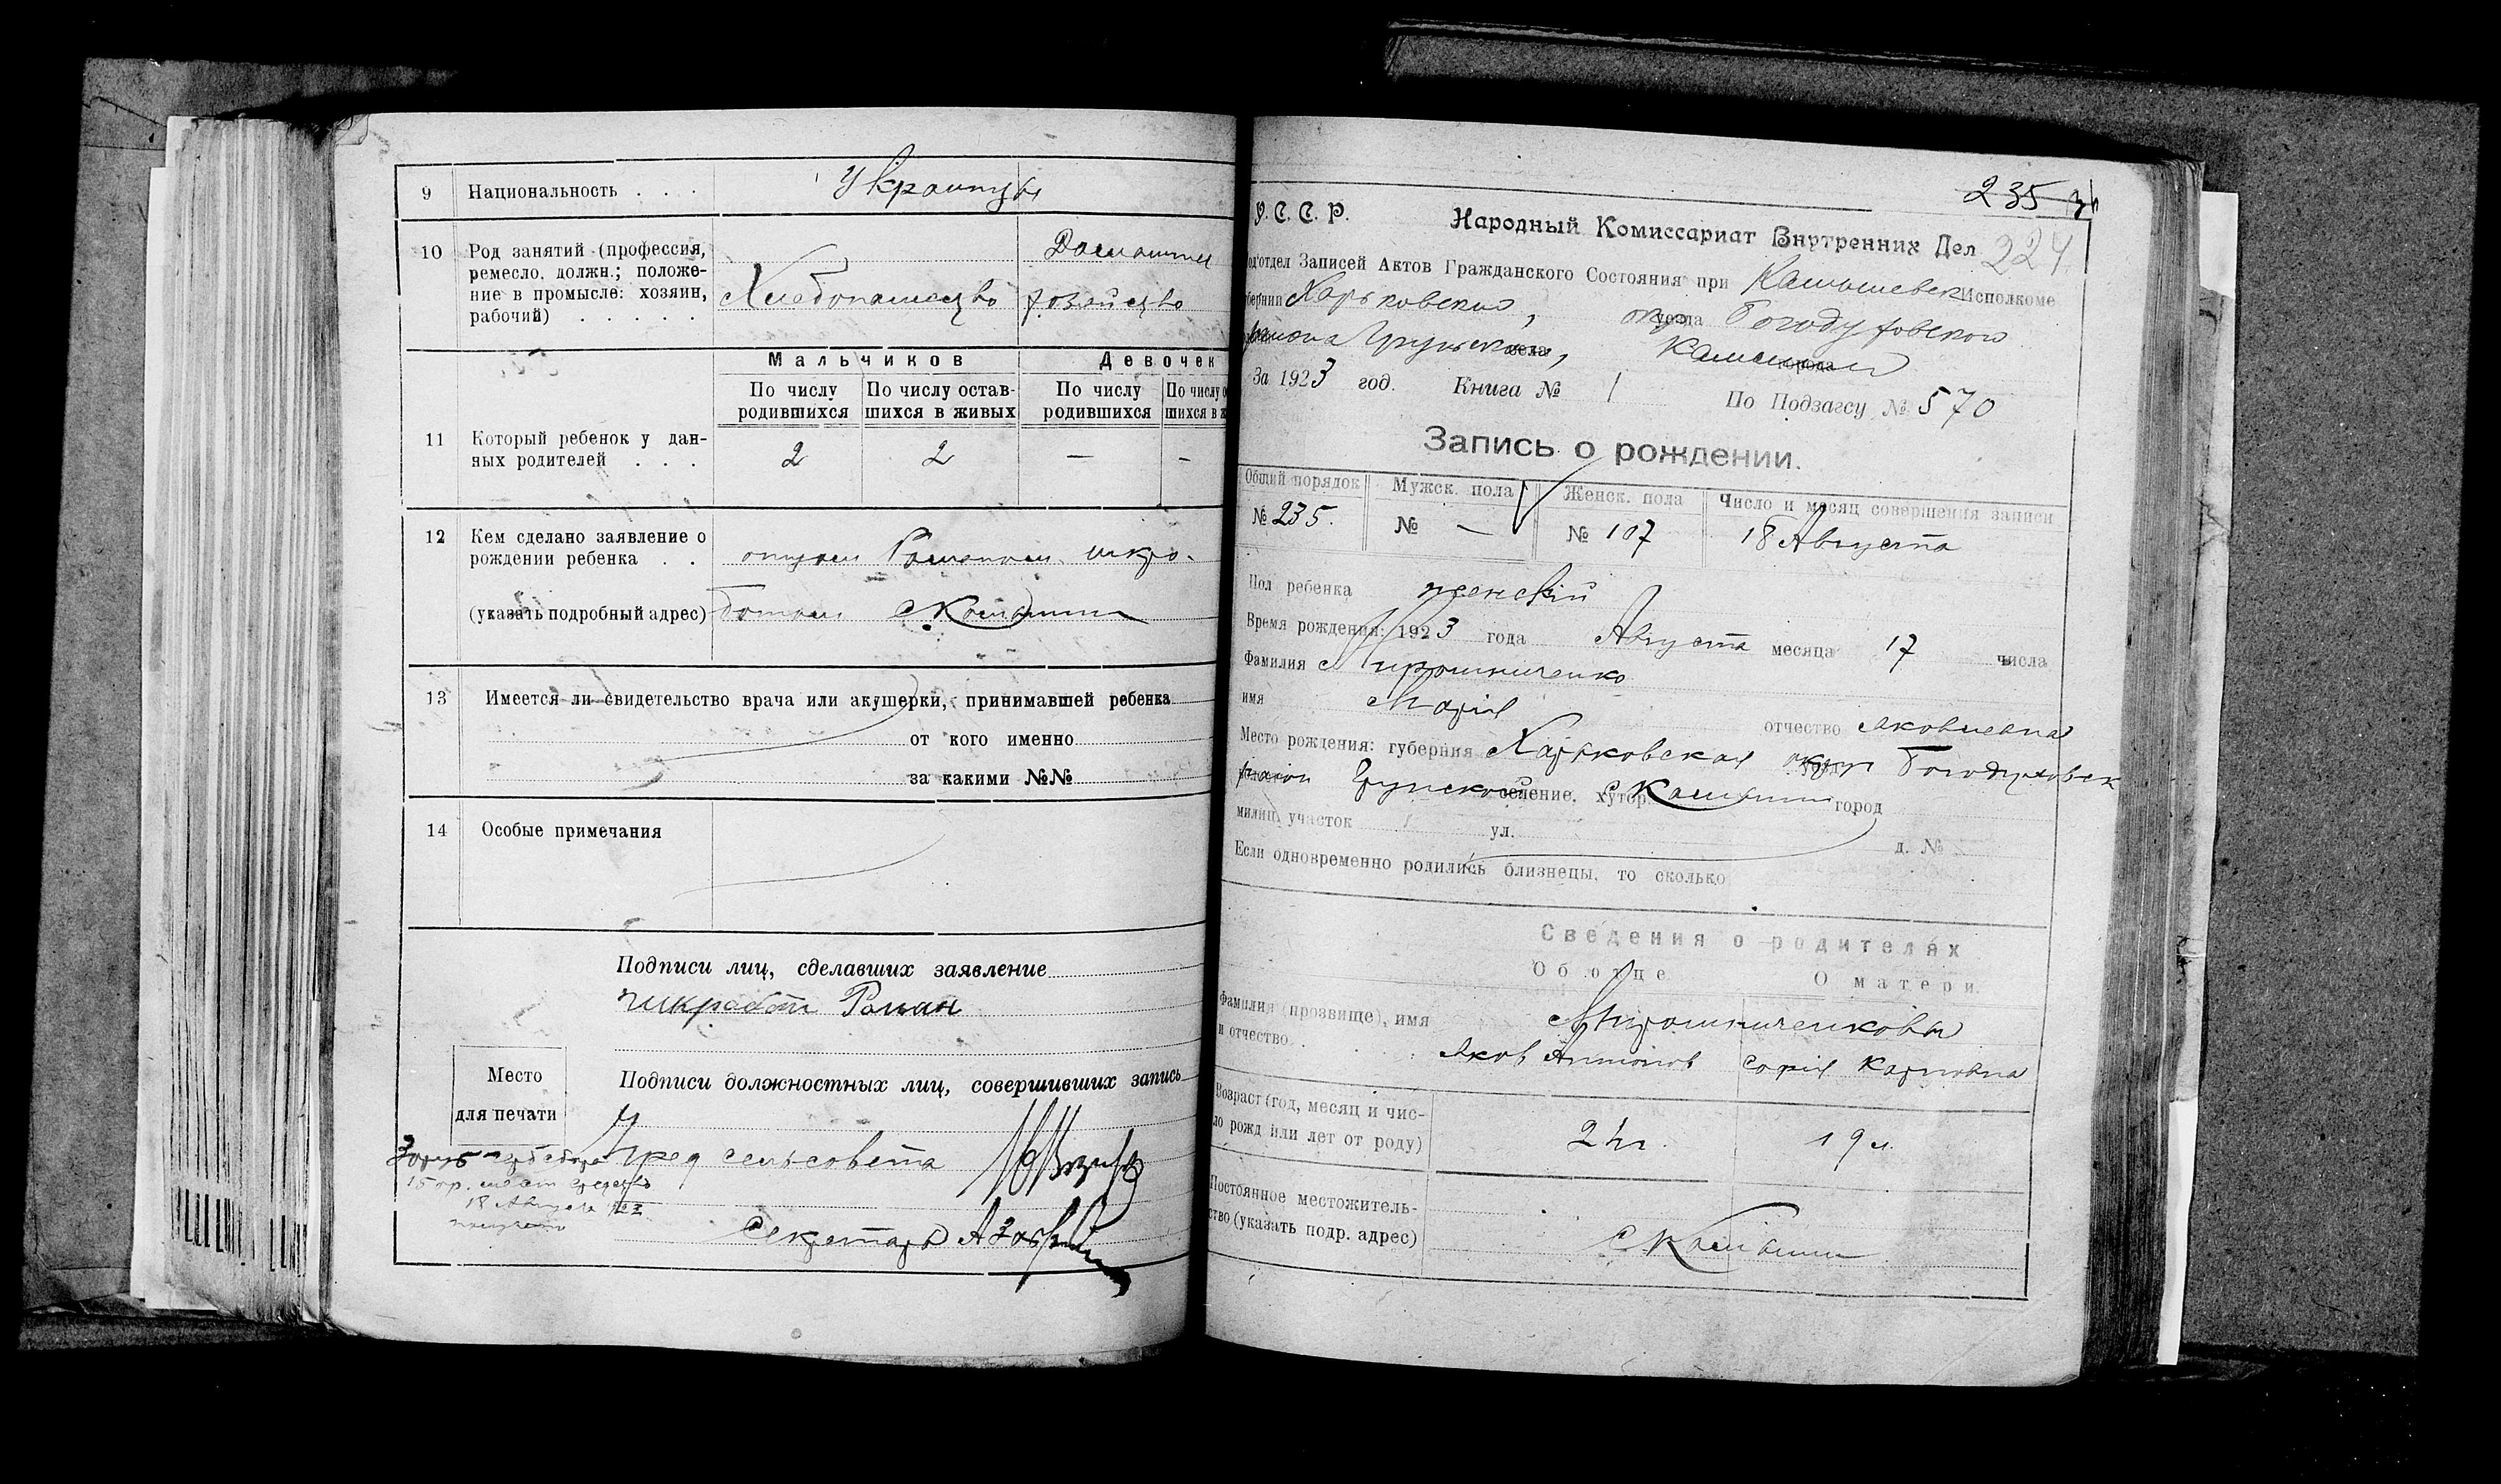 9 Национальность . . . Украинцы
10 Род занятий (профессия,
ремесло, должн.; положе-
ние в промысле: хозяин,
рабочий) . . . . .
Хлебопашество
Домашнее
хозяйство
Мальчиков Девочек
По числу родившихся
По числу остав-шихся в живых
По числу родившихся
По числу о
шихся в ж
11 Который ребенок у дан-
ных родителей . . .
2 2 — -
12 Кем сделано заявление о
рождении ребенка . .
(указать подробный адрес)
отцом Романом шкро-
ботом с Камыши
13 Имеется ли свидетельство врача или акушерки, принимавшей ребенка
от кого именно
за какими №№
14 Особые примечания
Подписи лиц, сделавших заявление
шкработ Роман
Место
для печати
Подписи должностных лиц, совершивших запись
Пред сельсовета
18 Августа
Секретарь
235
У.С.С.Р. Народный Комиссариат Внутренних Дел 224
од'отдел Записей Актов Гражданского Состояния при Камышевск Исполкоме
бернии Харьковской, окр уезда Богодуховской
района Грунской села, Камыши города
За 1923 год. Книга № 1 По Подзагсу № 570
Запись о рождении.
Общий порядок Мужск. пола Женск. пола Число и месяц совершения записи
№ 235. № — № 107 18 Августа
Пол ребенка женскій
Время рождения: 1923 года Августа месяца 17 числа
Фамилия Мирошниченко
имя Марія отчество Яковлевна
Место рождения: губерния Харьковская округ Богодуховск
район Грунской селение, хутор. с Камыши город
милиц. участок ул. д. №
Если одновременно родились близнецы, то сколько
Сведения о родителях
Об отце О матери.
Фамилия (прозвище), имя
и отчество . . .
Мирошниченковы
Яков Антонов Софія Карповна
Возраст (год, месяц и чис-
ло рожд или лет от роду)
19 л.
Постоянное местожитель-
ство (указать подр. адрес)
с Камыши